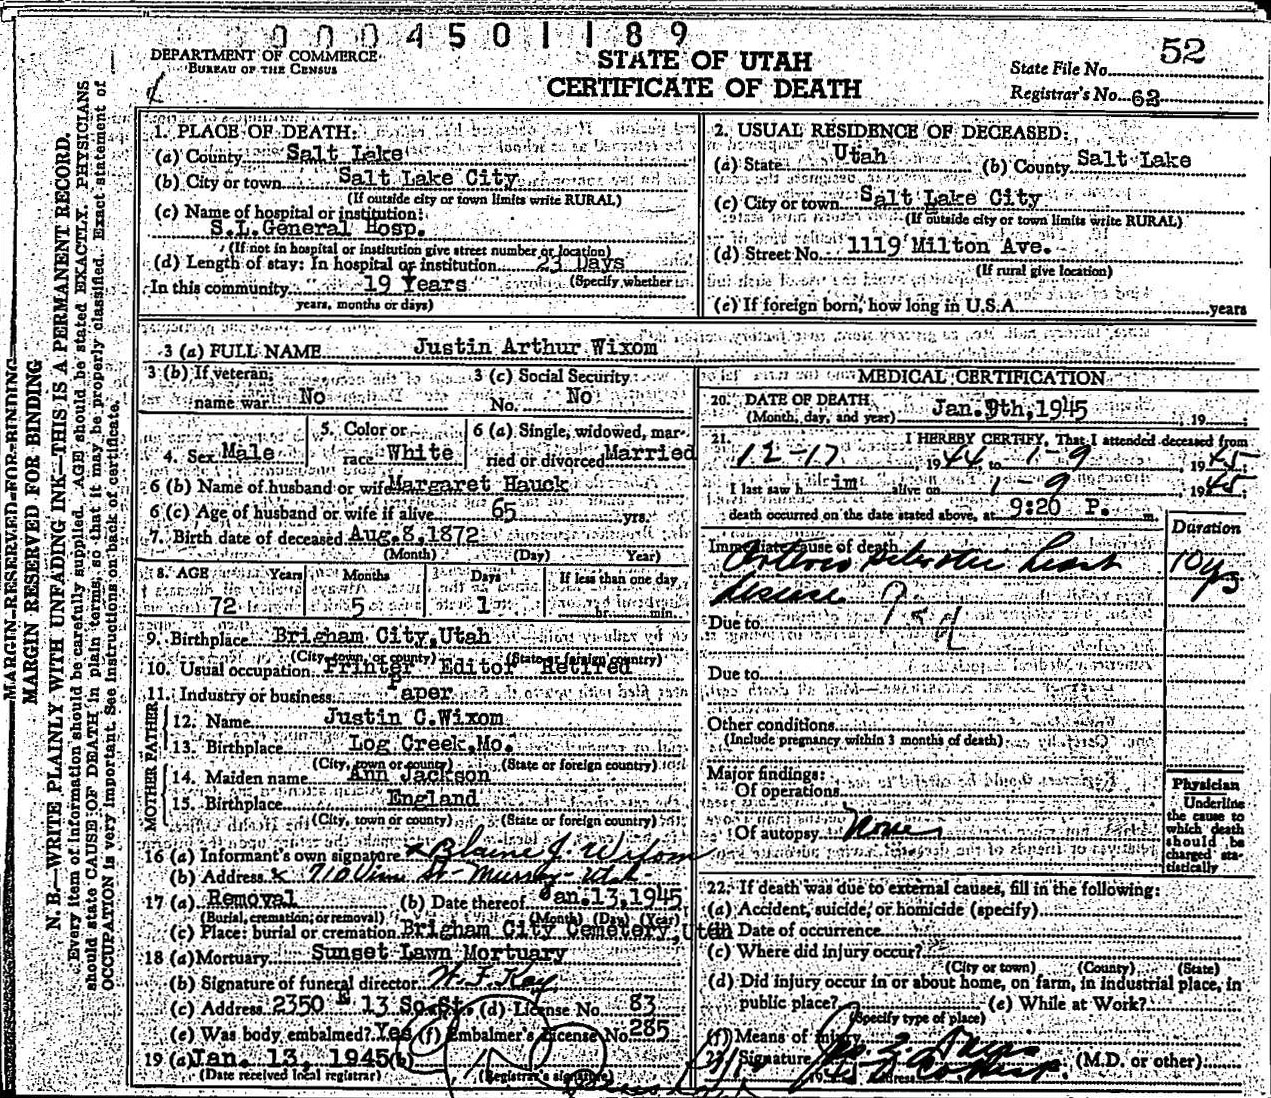 0004501189
DEPARTMENT OF COMMERCE
BUREAU OF THE CENSUS
STATE OF UTAH
CERTIFICATE OF DEATH
State File No. 52
Registrar's No. 62
MARGIN RESERVED FOR BINDING
MARGIN RESERVED FOR BINDING
N. B.—WRITE PLAINLY WITH UNFADING INK—THIS IS A PERMANENT RECORD.
Every item of information should be carefully supplied. AGE should be stated EXACTLY. PHYSICIANS
should state CAUSE OF DEATH in plain terms, so that it may be properly classified. Exact statement of
OCCUPATION is very important. See instructions on back of certificate.
1. PLACE OF DEATH:
(a) County Salt Lake
(b) City or town Salt Lake City
(If outside city or town limits write RURAL)
(c) Name of hospital or institution:
S.L.General Hosp.
(If not in hospital or institution give street number or location)
(d) Length of stay: In hospital or institution 23 Days
(Specify whether
In this community 19 Years
years, months or days)
2. USUAL RESIDENCE OF DECEASED:
(a) State Utah (b) County Salt Lake
(c) City or town Salt Lake City
(If outside city or town limits write RURAL)
(d) Street No. 1119 Milton Ave.
(If rural give location)
(e) If foreign born, how long in U.S.A. years
3 (a) FULL NAME Justin Arthur Wixom
3 (b) If veteran, name war No
3 (c) Social Security No. No
4. Sex Male
5. Color or race White
6 (a) Single, widowed, married or divorced Married
6 (b) Name of husband or wife Margaret Hauck
6 (c) Age of husband or wife if alive 65 yrs.
7. Birth date of deceased Aug.8,1872
(Month) (Day) Year)
8. AGE Years Months Days If less than one day
72 5 1 hr. min.
9. Birthplace Brigham City,Utah
(City, town, or county) (State or foreign country)
10. Usual occupation Printer Editor Retired
11. Industry or business Paper
FATHER
12. Name Justin C.Wixom
13. Birthplace Log Creek,Mo.
(City, town or county) (State or foreign country)
MOTHER
14. Maiden name Ann Jackson
15. Birthplace England
(City, town or county) (State or foreign country)
16 (a) Informant's own signature x Blaine J. Wixom
(b) Address x 710 Vine St - Murray - Utah -
17 (a) Removal (b) Date thereof Jan.13,1945
(Burial, cremation, or removal) (Month) (Day) (Year)
(c) Place: burial or cremation Brigham City Cemetery,Utah
18 (a) Mortuary Sunset Lawn Mortuary
(b) Signature of funeral director W. F. Key
(c) Address 2350 E 13 So.St. (d) License No. 83
(e) Was body embalmed? Yes (f) Embalmer's License No. 285
19 (a) Jan. 13, 1945 (b)
(Date received local registrar) (Registrar's signature)
MEDICAL CERTIFICATION
20. DATE OF DEATH Jan.9th,1945 , 19 ;
(Month, day, and year)
21. I HEREBY CERTIFY, That I attended deceased from
12-17 , 1944 to 1-9 , 1945
I last saw him alive on 1-9 , 1945
death occurred on the date stated above, at 9:20 P. m.
Duration
Immediate cause of death Arteriosclerotic heart 10 yrs
disease
Due to
Due to
Other conditions
(Include pregnancy within 3 months of death)
Major findings:
Of operations
Of autopsy None
Physician
Underline
the cause to
which death
should be
charged sta-
tistically
22. If death was due to external causes, fill in the following:
(a) Accident, suicide, or homicide (specify)
(b) Date of occurrence
(c) Where did injury occur?
(City or town) (County) (State)
(d) Did injury occur in or about home, on farm, in industrial place, in
public place? (e) While at Work?
(Specify type of place)
(f) Means of injury
23. Signature (M.D. or other)